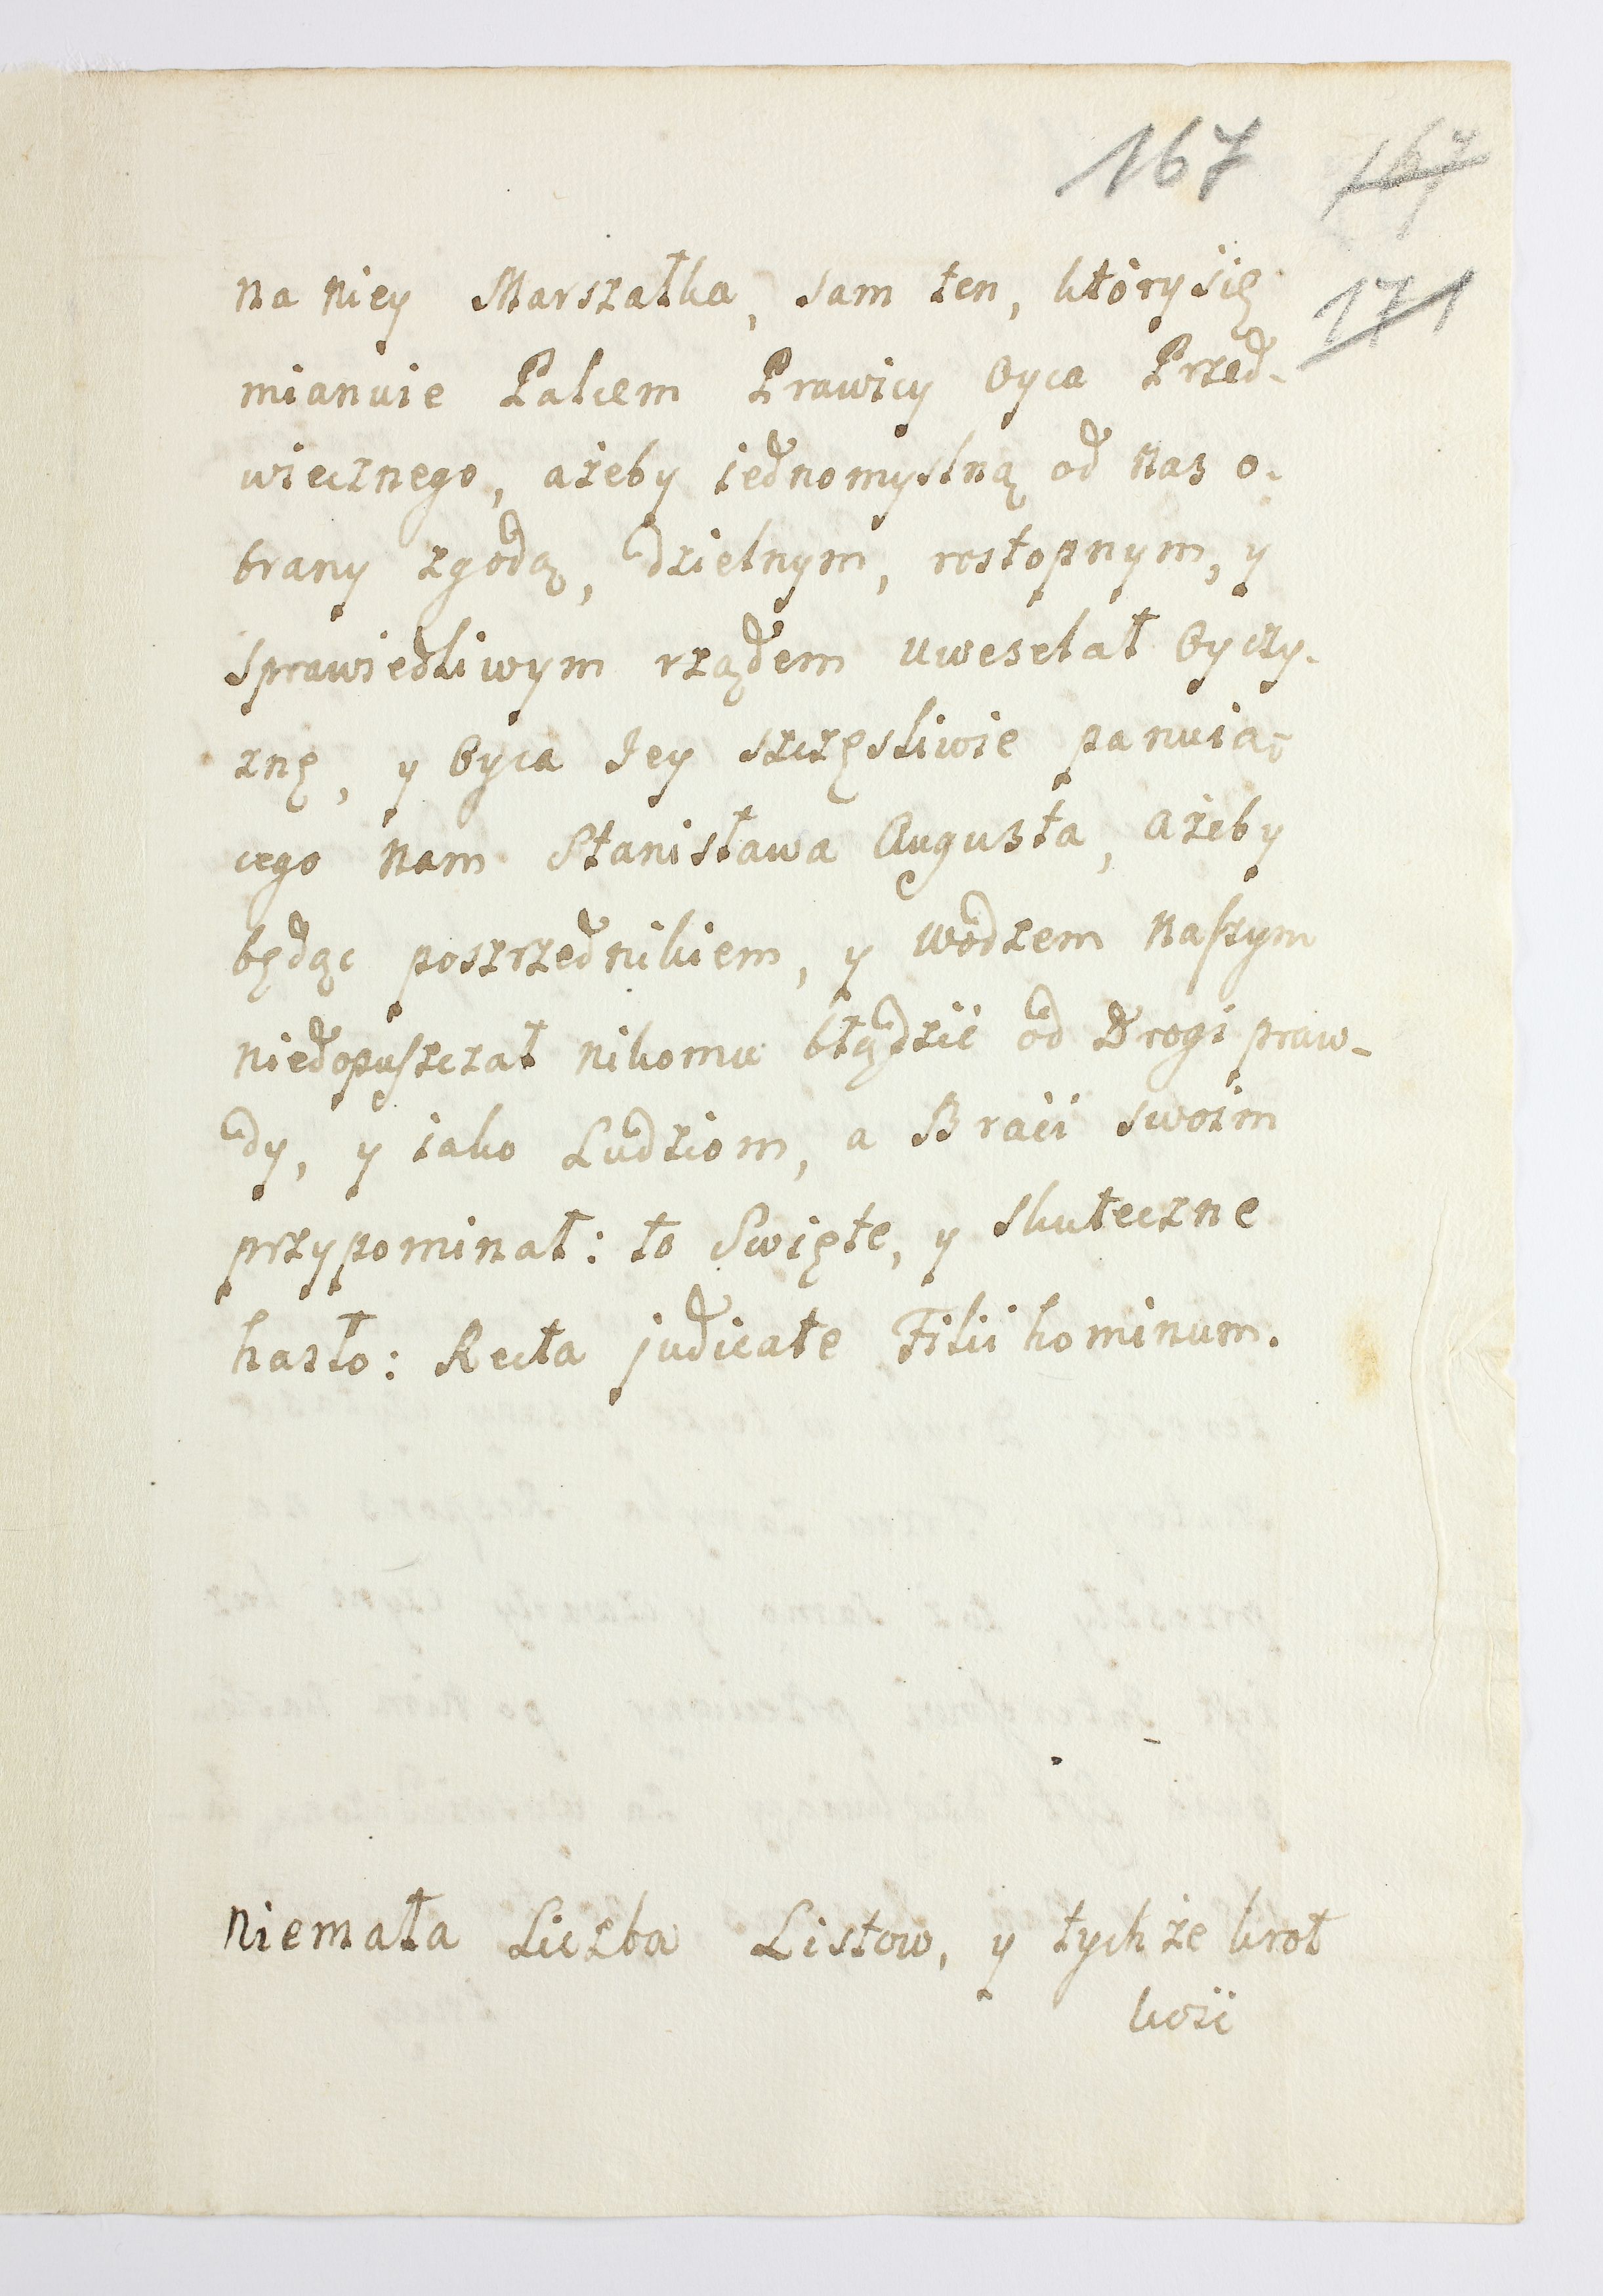 167 167
171
na niey Marszałka, sam ten, który się
mianuie Palcem Prawicy Oyca Przed-
wiecznego, ażeby iednomyslną od nas o-
brany zgodą, dzielnym, rostopnym, y
sprawiedliwym rządem uweselał Oyczy-
znę, y Oyca Jey szczęsliwie panuią-
cego nam Stanisława Augusta, ażeby
będąc poszrzednikiem, y wodzem naszym
niedopuszczał nikomu błądzić od Drogi praw-
dy, y iako Ludziom, a Braci swoim
przypominał: to Swięte, y skuteczne
hasło: Recta judicate Filii hominum.
Niemała Liczba Listow, y tychże krot
kość